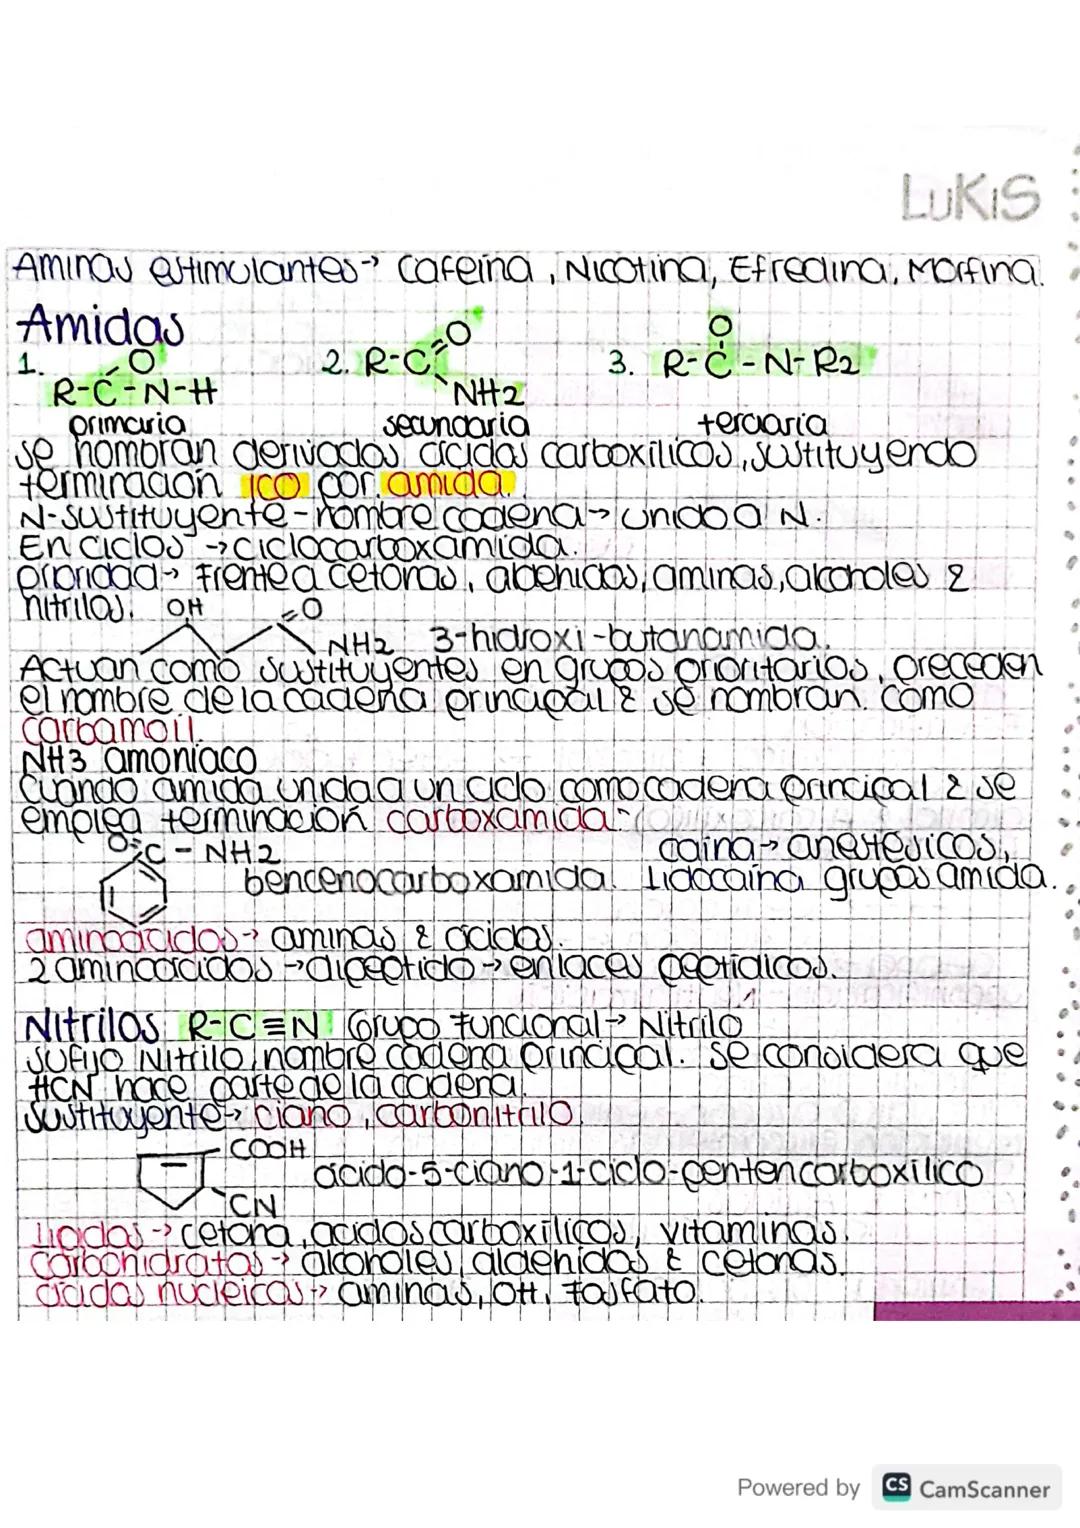 LUKIS
Aminas estimulantes → cafeína, Nicotina, Efredina, Morfina.
Amidas
1. O
R-C-N-H
primaria
2. R-C=O
NH2
secundaria
3. O
R-C-N-R2
terciaria
se nombran derivados ácidos carboxílicos, sustituyendo
terminación ico por amida.
N-sustituyente-nombre cadena → unido a N.
En ciclos → ciclocarboxamida.
prioridad → Frente a cetonas, aldehidos, aminas, alcoholes &
nitrilos.
OH
O
NH2 3-hidroxi-butanamida.
Actuan como sustituyentes en grupos prioritarios, preceden
el nombre de la cadena principal & se nombran como
carbamoil.
NH3 amoniaco
Cuando amida unida a un ciclo como cadena principal & se
emplea terminación carboxamida:
O=C-NH2
caina → anestesicos,
bencenocarboxamida. Lidocaína grupos amida.
aminoácidos → aminas & ácidos.
2 aminoácidos → dipeptido → enlaces peptidicos.
Nitrilos R-C≡N Grupo funcional → Nitrilo
sufijo Nitrilo, nombre cadena principal. se considera que
HCN hace parte de la cadena.
sustituyente → ciano, carbonitrilo.
COOH
ácido-5-ciano-1-ciclo-pentencarboxílico
CN
Lípidos → cetona, ácidos carboxílicos, vitaminas.
Carbohidratos → alcoholes, aldehidos & cetonas.
ácidos nucleicos → aminas, OH, fosfato.
Powered by CS CamScanner